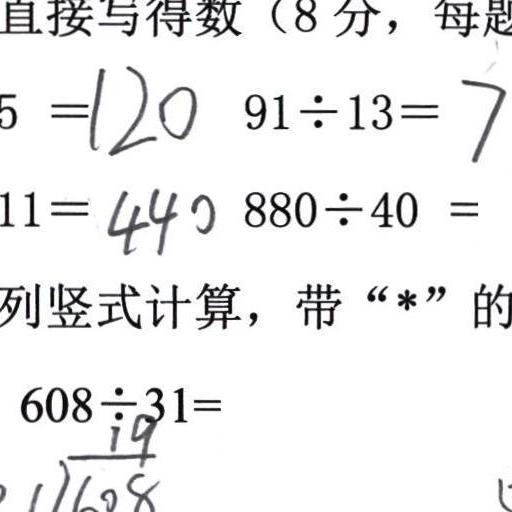 直接写得数（8 分，每题
5 =120 91÷13= 7
11= 440 880÷40 =
列竖式计算，带“*”的
608÷31=
19
1)608